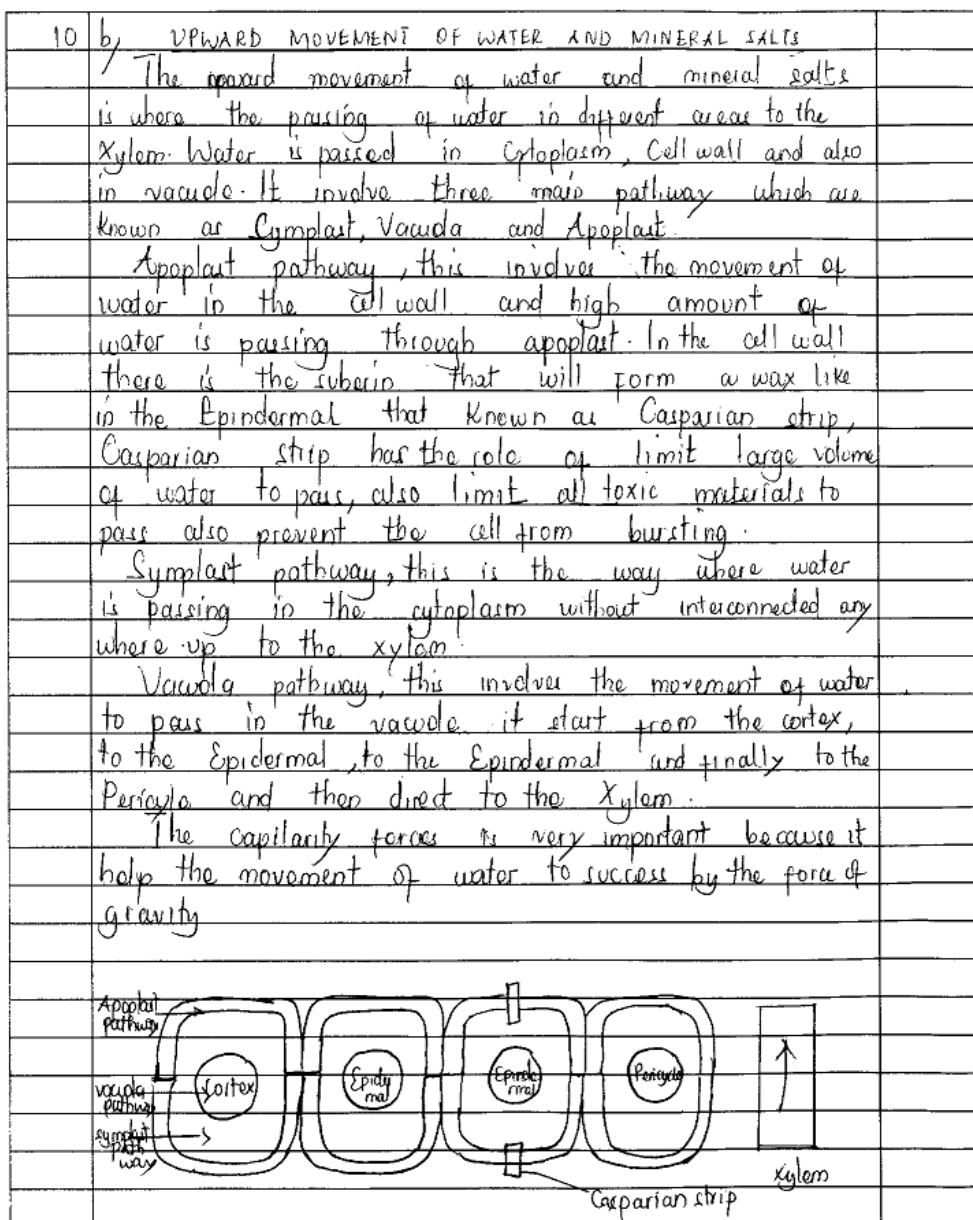 10 b, UPWARD MOVEMENT OF WATER AND MINERAL SALTS
The upward movement of water and mineral salts
is where the passing of water in different areas to the
Xylem. Water is passed in Cytoplasm, Cell wall and also
in vacuole. It involve three main pathway which are
known as Cymplast, Vacuola and Apoplast.
Apoplast pathway, this involves the movement of
water in the cell wall and high amount of
water is passing through apoplast. In the cell wall
there is the suberin that will form a wax like
in the Epindermal that Known as Casparian strip,
Casparian strip has the role of limit large volume
of water to pass, also limit all toxic materials to
pass also prevent the cell from bursting.
Symplast pathway, this is the way where water
is passing in the cytoplasm without interconnected any
where up to the xylem.
Vacuola pathway, this involves the movement of water
to pass in the vacuole it start from the cortex,
to the Epidermal, to the Epindermal and finally to the
Pericycle and then direct to the Xylem.
The capilarity forces is very important because it
help the movement of water to success by the force of
gravity
Apoplast
pathway
vacuola
pathway
symplast
path
way
Cortex
Epidy
mal
Epinde
rmal
Pericycle
Xylem
Casparian strip